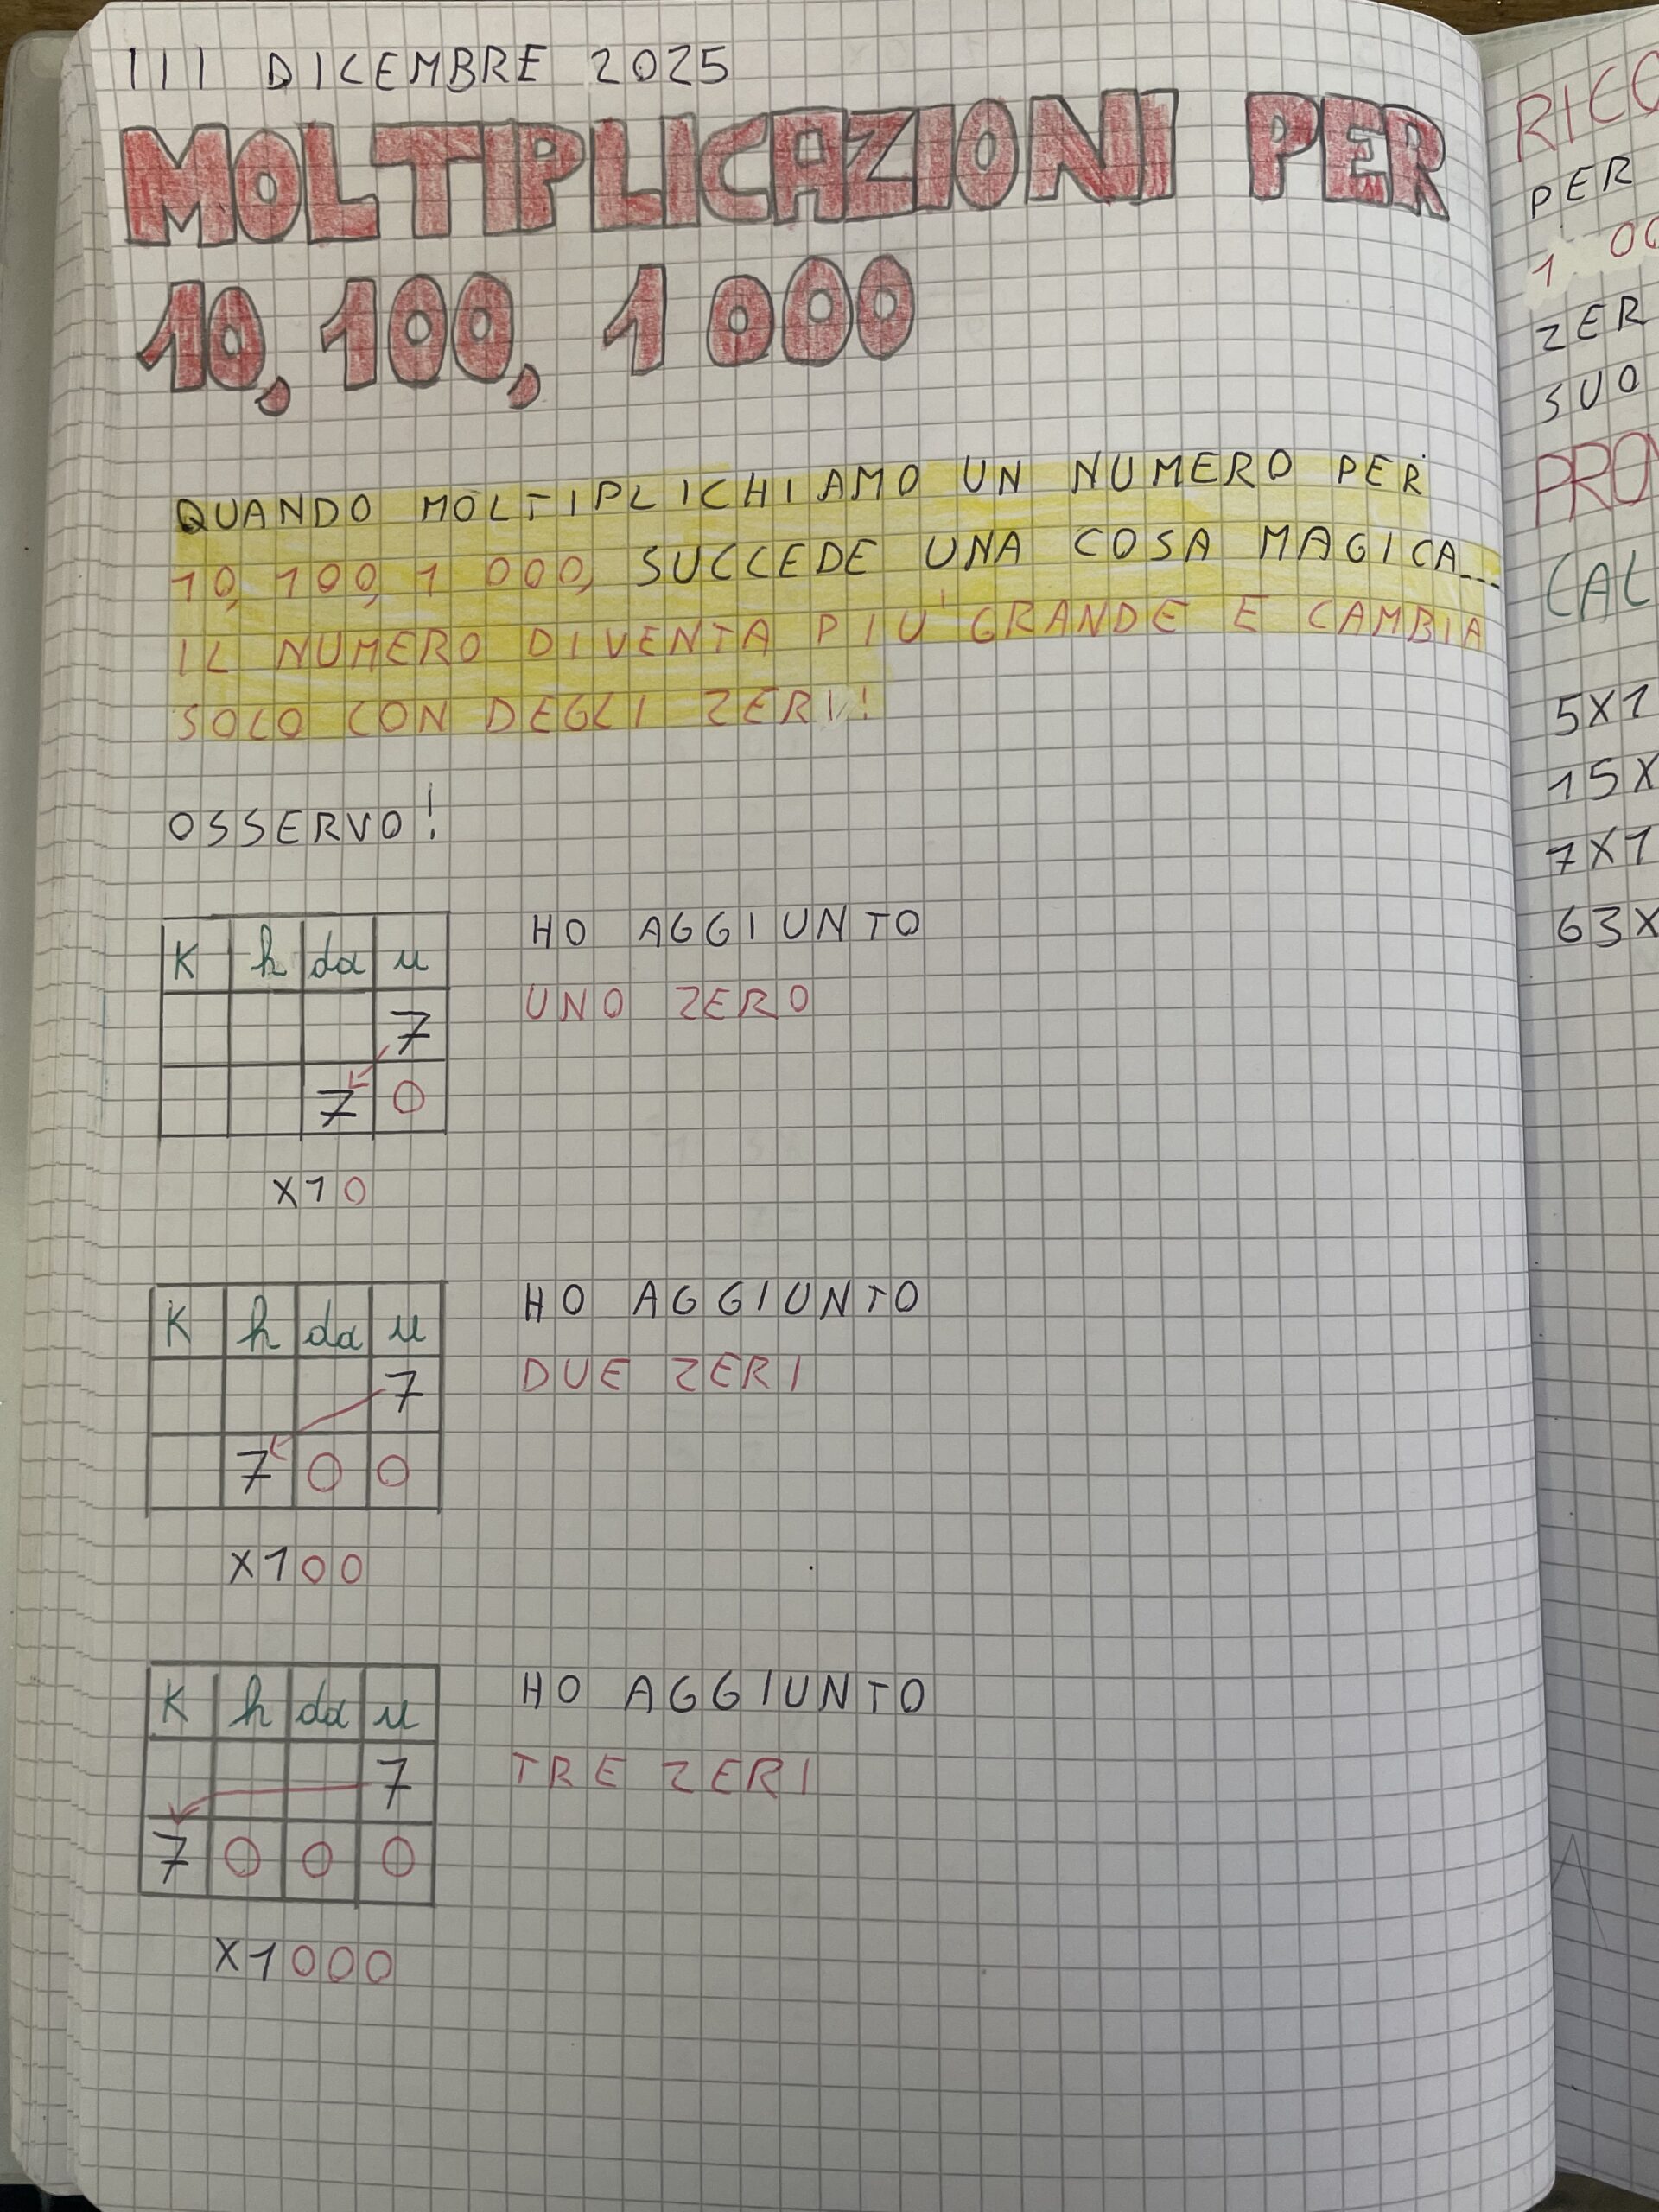 III DICEMBRE 2025
MOLTIPLICAZIONI PER
10, 100, 1 000
QUANDO MOLTIPLICHIAMO UN NUMERO PER
10, 100, 1 000, SUCCEDE UNA COSA MAGICA...
IL NUMERO DIVENTA PIU' GRANDE E CAMBIA
SOLO CON DEGLI ZERI!
OSSERVO!
K h da u
7
7 0
X10
HO AGGIUNTO
UNO ZERO
K h da u
7
7 0 0
X100
HO AGGIUNTO
DUE ZERI
K h da u
7
7 0 0 0
X1000
HO AGGIUNTO
TRE ZERI
PER
ZER
SUO
CAL
5X1
15X
7X1
63X